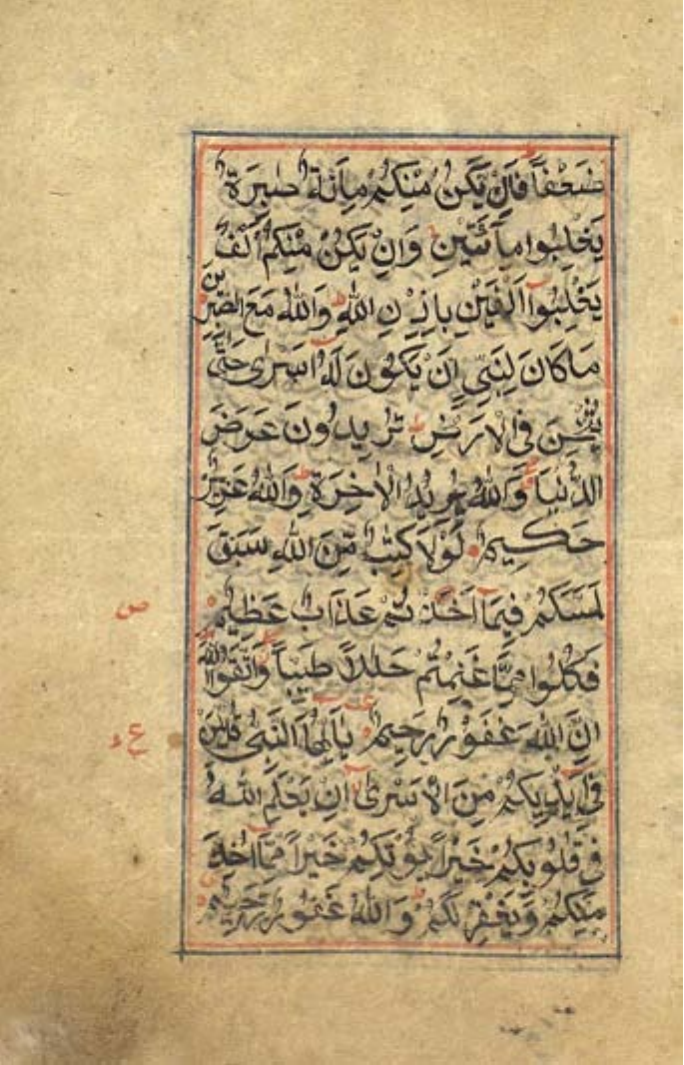 ضَعْفًا فَاِنْ يَّكُنْ مِّنْكُمْ مِّائَةٌ صَابِرَةٌ
يَّغْلِبُوا مِائَتَيْنِ وَاِنْ يَّكُنْ مِّنْكُمْ اَلْفٌ
يَّغْلِبُوْٓا اَلْفَيْنِ بِاِذْنِ اللّٰهِ وَاللّٰهُ مَعَ الصّٰبِرِيْنَ
مَا كَانَ لِنَبِيٍّ اَنْ يَّكُوْنَ لَهٗٓ اَسْرٰى حَتّٰى
يُثْخِنَ فِى الْاَرْضِ تُرِيْدُوْنَ عَرَضَ
الدُّنْيَا وَاللّٰهُ يُرِيْدُ الْاٰخِرَةَ وَاللّٰهُ عَزِيْزٌ
حَكِيْمٌ لَوْلَا كِتٰبٌ مِّنَ اللّٰهِ سَبَقَ
لَمَسَّكُمْ فِيْمَآ اَخَذْتُمْ عَذَابٌ عَظِيْمٌ
ص
فَكُلُوْا مِمَّا غَنِمْتُمْ حَلٰلًا طَيِّبًا وَّاتَّقُوا اللّٰهَ
اِنَّ اللّٰهَ غَفُوْرٌ رَّحِيْمٌ يٰٓاَيُّهَا النَّبِىُّ قُلْ لِّمَنْ
ع
فِىْٓ اَيْدِيْكُمْ مِّنَ الْاَسْرٰٓى اِنْ يَّعْلَمِ اللّٰهُ
فِىْ قُلُوْبِكُمْ خَيْرًا يُّؤْتِكُمْ خَيْرًا مِّمَّآ اُخِذَ
مِنْكُمْ وَيَغْفِرْ لَكُمْ وَاللّٰهُ غَفُوْرٌ رَّحِيْمٌ